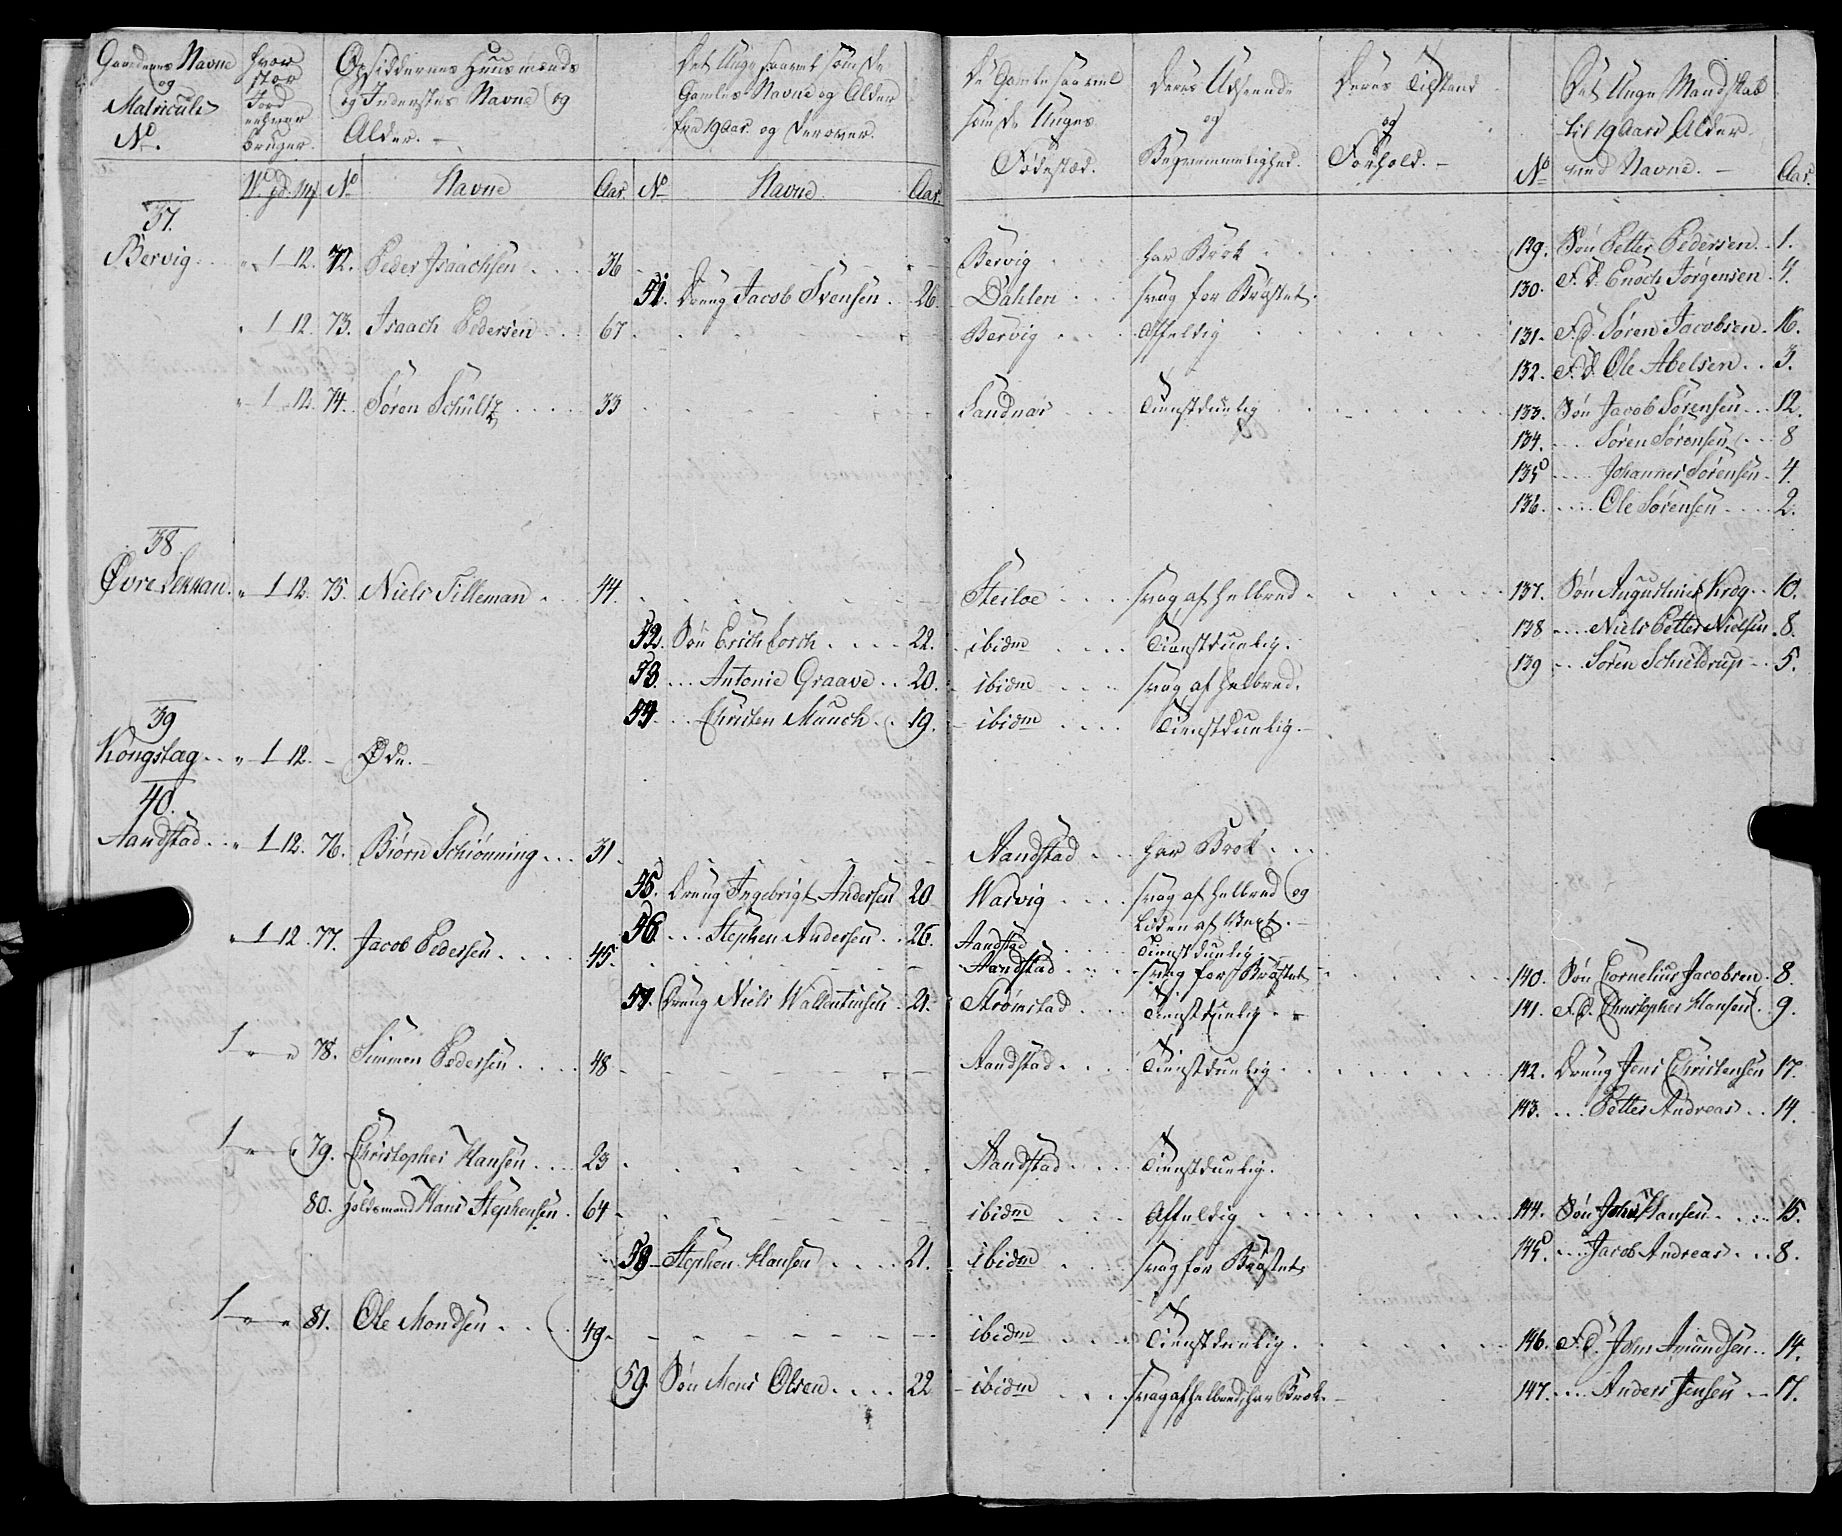 Gaardenes Navne og Matriculs No.
hvor stor Jord enhver bruger.
Opsiddernes Huusmænds og Inderstes Navne og Alder.
Det Unge saavel som de Gamles Navne og Alder fra 19 Aar og derover.
De Gamle saavel som de Unges Fødested.
Deres Udseende og Beqvemmelighed.
Deres Tilstand og Forhold.
Det Unge Mandskab til 19 Aars Alder med Navne.
W. pd. Mk No Navne Aar. No Navne Aar. No Aar.
37.
Bervig " 1 12. 72. Peder Isaachsen 36 Bervig har Brok 129. Søn Petter Pedersen 1.
51. Dreng Jacob Svensen 26 Dahlen svag for Brøstet. 130. F. d. Enoch Jørgensen 4.
" 1 12. 73. Isaach Pedersen 67 Bervig Affeldig 131. F. d. Søren Jacobsen 16.
132. F. d. Ole Abelsen 3.
" 1 12. 74. Søren Schultz 33 Sandnær Tienstdunlig 133. Søn Jacob Sørensen 12.
134. Søren Sørensen 8
135 Johannes Sørensen 4.
136. Ole Sørensen 2.
38
Øvre Lekkan " 1 12. 75. Niels Tilleman 44. Steiloe svag af helbred 137. Søn Augustinus Krog 10.
52. Søn Erich Lorch 22. ibidm Tienstdunlig. 138 Niels Petter Nielsen 8.
53. Antonie Graave 20. ibidm svag af helbred. 139 Søren Schieldrup 5.
54. Christen Munch 19. ibidm Tienstdunlig.
39
Kongslæg " 1 12. Øde.
40.
Aandstad " 1 12. 76. Biørn Schiønning 31 Aandstad har Brok
55. Dreng Ingebrigt Andersen 20 Warvig svag af helbred og
Liden af Vext.
56. Stephen Andersen 26. Aandstad Tienstdunlig
" 1 12 77. Jacob Pedersen 45. Aandstad svag for Brøstet 140. Søn Cornelius Jacobsen 8.
57. Dreng Niels Waldentinsen 21. Strømstad Tienstdunlig 141. F. d. Christopher Hansen 9.
1 " " 78. Simmon Pedersen 48 Aandstad Tienstdunlig 142. Dreng Jens Christensen 17.
143. Petter Andreas 14.
1 " " 79. Christopher Hansen 23 Aandstad Tienstdunlig.
80. Holdsmand Hans Stephensen 64 ibidm Affeldig 144. Søn John Hansen 15.
58 Stephen Hansen 21. ibidm svag for Brøstet 145. Jacob Andreas 8.
1 " " 81. Ole Mondsen 49 ibidm Tienstdunlig. 146. F. d. John Amundsen 14.
59. Søn Mons Olsen 22 ibidm svag af helbred, har Brok. 147. Anders Jensen 17.